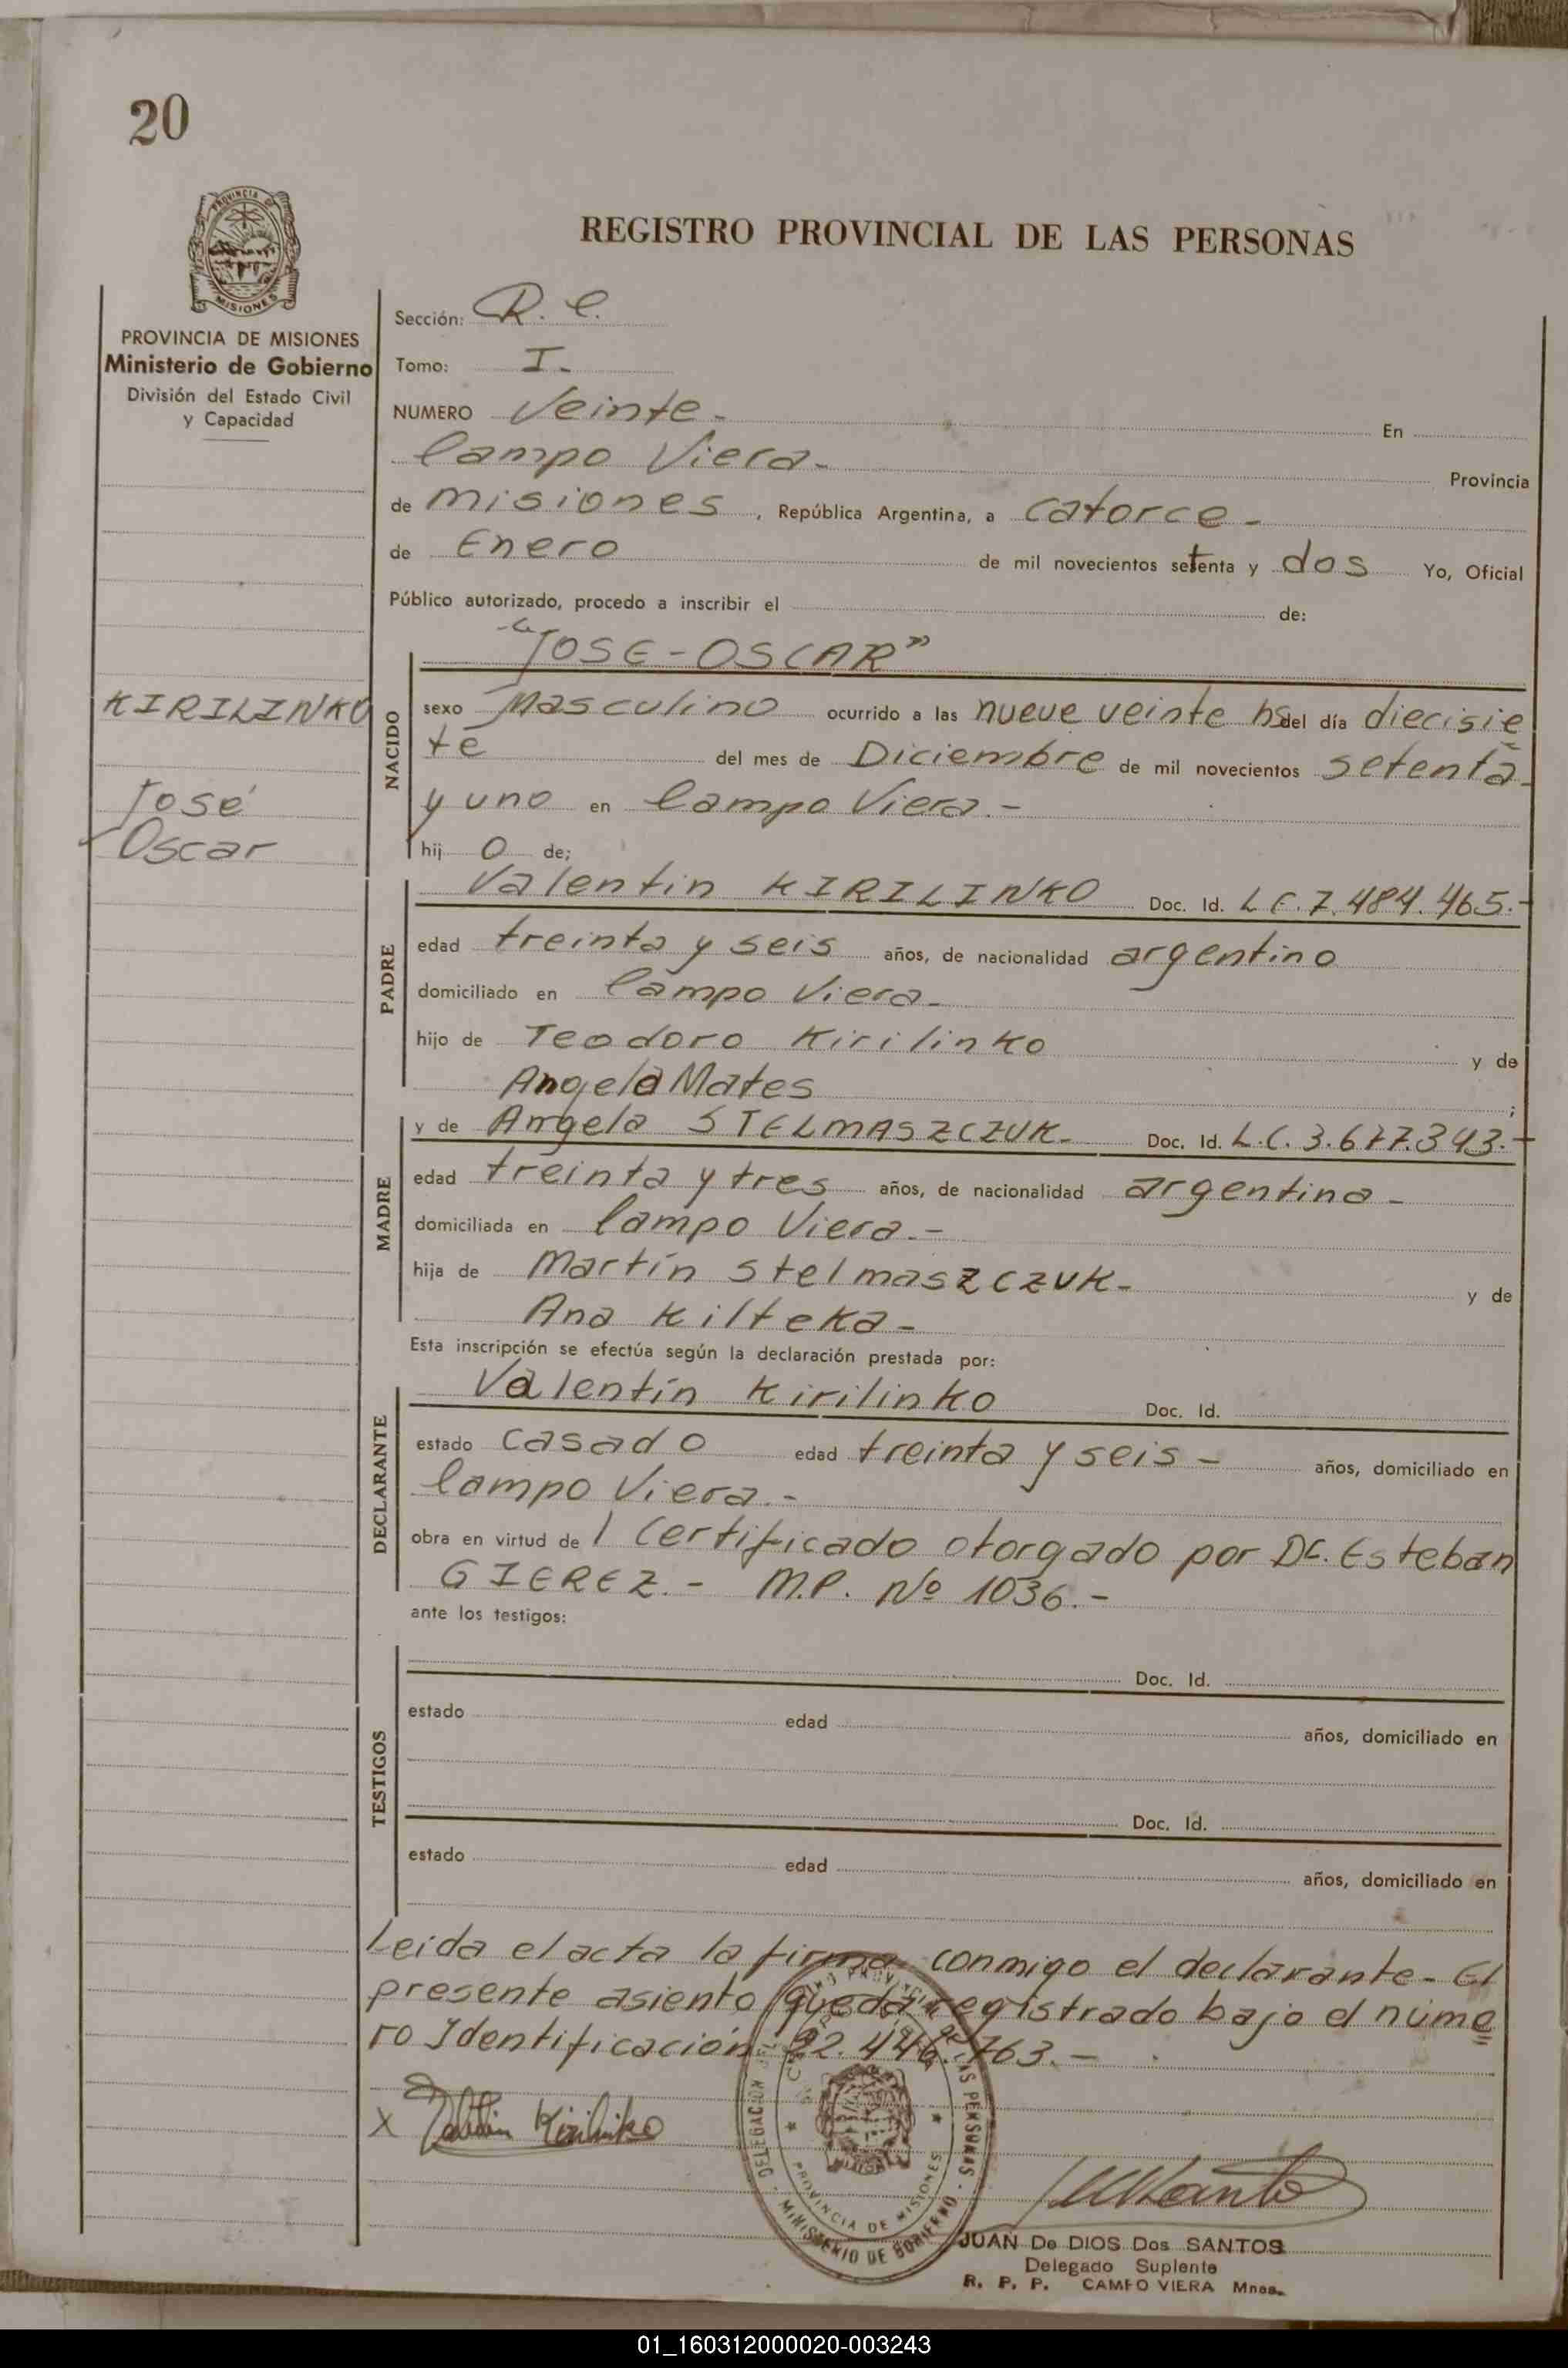 20
PROVINCIA DE
MISIONES
REGISTRO PROVINCIAL DE LAS PERSONAS
PROVINCIA DE MISIONES
Ministerio de Gobierno
División del Estado Civil
y Capacidad
Sección: R. C.
Tomo: I.-
NUMERO Veinte.- En
Campo Viera.- Provincia
de Misiones, República Argentina, a catorce.-
de Enero de mil novecientos setenta y dos Yo, Oficial
Público autorizado, procedo a inscribir el de:
-"JOSE-OSCAR"
KIRILINKO
José
Oscar
NACIDO
sexo Masculino ocurrido a las nueve veinte hs del día diecisie
te del mes de Diciembre de mil novecientos setenta
y uno en Campo Viera.-
hij o de;
PADRE
Valentin KIRILINKO Doc. Id. L.E. 7.484.465.-
edad treinta y seis años, de nacionalidad argentino
domiciliado en Campo Viera.-
hijo de Teodoro Kirilinko y de
Angela Mates ;
MADRE
y de Angela STELMASZCZUK.- Doc. Id. L.C. 3.677.343.-
edad treinta y tres años, de nacionalidad argentina.-
domiciliada en Campo Viera.-
hija de Martín Stelmaszczuk.- y de
Ana Kilteka.-
Esta inscripción se efectúa según la declaración prestada por:
DECLARANTE
Valentín Kirilinko Doc. Id.
estado casado edad treinta y seis.- años, domiciliado en
Campo Viera.-
obra en virtud de 1 Certificado otorgado por Dr. Esteban
GIEREZ.- M.P. Nº 1036.-
ante los testigos:
TESTIGOS
Doc. Id.
estado edad años, domiciliado en
Doc. Id.
estado edad años, domiciliado en
Leida el acta la firma conmigo el declarante.- El
presente asiento queda registrado bajo el núme
ro Identificación: 22.446.763.-
X Valentin Kirilinko
DELEGACION DEL
AS PERSONAS
PROVINCIA DE MISIONES
MINISTERIO DE GOBIERNO
JUAN De DIOS Dos SANTOS
Delegado Suplente
R. P. P. CAMPO VIERA Mnes.
01_160312000020-003243